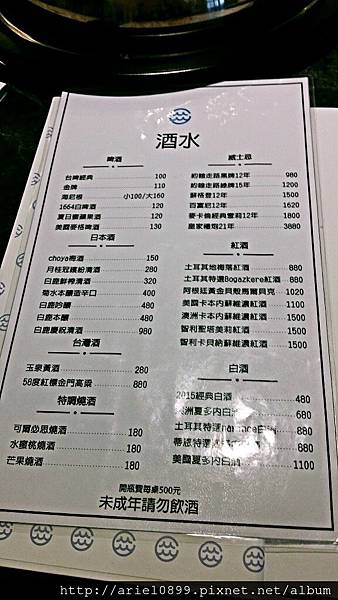 酒水
啤酒
台啤經典 100
金牌 110
海尼根 小100/大160
1664白啤酒 120
夏日蜜蘋果酒 120
美國麥格啤酒 130
日本酒
choya梅酒 150
月桂冠繽紛清酒 280
白鹿鮮榨清酒 320
菊水本釀造辛口 400
白鹿吟釀 480
白鹿本釀 480
白鹿慶祝清酒 980
台灣酒
玉泉黃酒 280
58度紅標金門高粱 880
特調燒酒
可爾必思燒酒 180
水蜜桃燒酒 180
芒果燒酒 180
威士忌
約翰走路黑牌12年 980
約翰走路綠牌15年 1200
蘇格登12年 1500
百富尼12年 1620
麥卡倫經典雪莉12年 1800
皇家禮炮21年 3880
紅酒
土耳其地梅落紅酒 880
土耳其特選Bogazkere紅酒 880
阿根廷黃金貝殼馬爾貝克 1020
美國卡本內蘇維濃紅酒 1100
澳洲卡本內蘇維濃紅酒 1500
智利聖塔美莉紅酒 1500
智利卡貝納蘇維濃紅酒 1500
白酒
2015經典白酒 480
洲夏多內白酒 680
土耳其特選 白酒 880
蒂悠特選 880
美國夏多內白酒 1100
開瓶費每桌500元
未成年請勿飲酒
http://ariel0899.pixnet.net/album